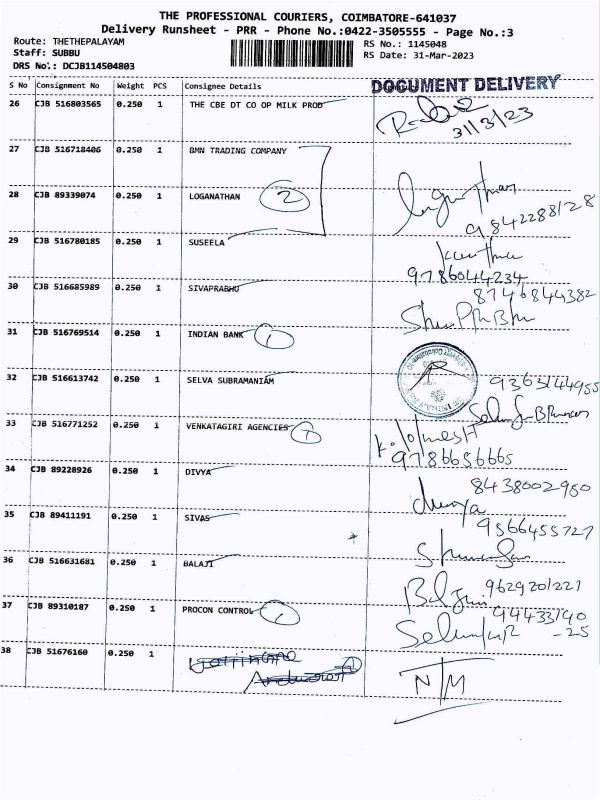 THE PROFESSIONAL COURIERS, COIMBATORE-641037
Delivery Runsheet - PRR - Phone No.:0422-3505555 - Page No.:3
Route: THETHEPALAYAM RS No.: 1145048
Staff: SUBBU RS Date: 31-Mar-2023
DRS No.: DCJB114504803
S No Consignment No Weight PCS Consignee Details DOCUMENT DELIVERY
26 CJB 516803565 0.250 1 THE CBE DT CO OP MILK PROD
31/3/23
27 CJB 516718406 0.250 1 BMN TRADING COMPANY
28 CJB 89339074 0.250 1 LOGANATHAN 2
9842288128
29 CJB 516780185 0.250 1 SUSEELA
9786044234
30 CJB 516685989 0.250 1 SIVAPRABHU 8746844382
31 CJB 516769514 0.250 1 INDIAN BANK 1
32 CJB 516613742 0.250 1 SELVA SUBRAMANIAM 9363144955
33 CJB 516771252 0.250 1 VENKATAGIRI AGENCIES 1
9786656665
34 CJB 89228926 0.250 1 DIVYA 8438002950
35 CJB 89411191 0.250 1 SIVAS 9566455727
36 CJB 516631681 0.250 1 BALAJI
9629201221
37 CJB 89310187 0.250 1 PROCON CONTROL 1 94433140
-25
38 CJB 51676160 0.250 1
N/M